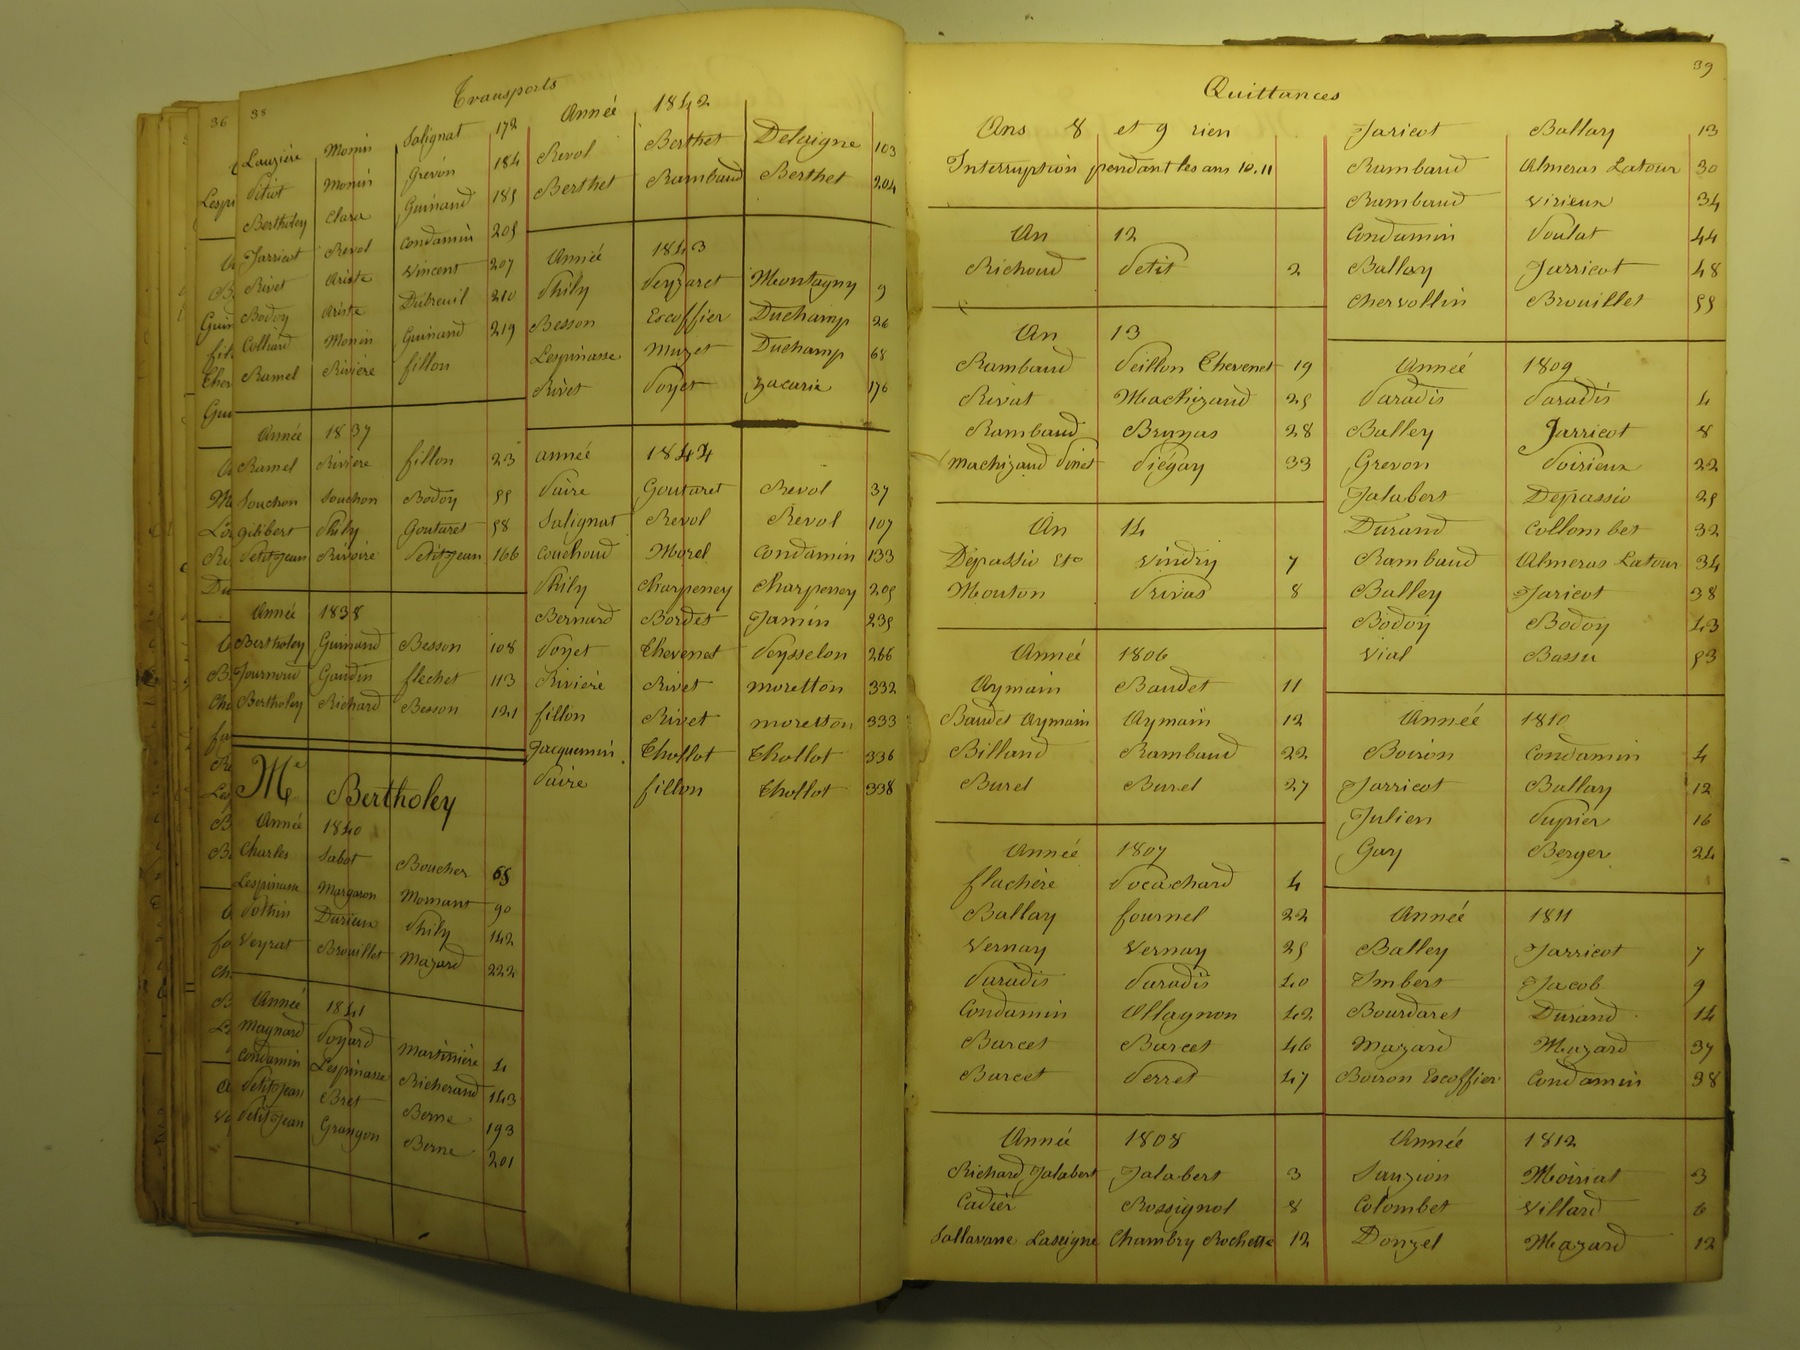 36
38
Transports
Lauzière Monin Salignat 172
Petiot Monin Grévon 184
Bertholey Clara Guinand 185
Jarricot Revol Condamin 205
Rivet Ariste Vincent 207
Bodoy Ariste Dubreuil 210
Colliard Monin Guinand 219
Ramel Rivière fillon
Année 1837
Ramel Rivière fillon 23
Souchon Souchon Bodoy 55
gilibert Phily Goutaret 58
Petitjean Rivoire Petitjean 166
Année 1838
Bertholey Guinand Besson 108
Journoud Gaudin flechet 113
Bertholey Richard Besson 121
Me Bertholey
Année 1840
Charles Sabot Boucher 65
Lespinasse Margaron Mornant 90
Pothin Durieux Phily 142
Veyrat Brouillet Mazard 222
Année 1841
Maynard Poyard Martinière 4
Condamin Lespinasse Richerand 143
Petitjean Bret Berne 193
Petitjean Grangon Berne 201
Année 1842
Revol Berthet Delaigne 103
Berthet Rambaud Berthet 204
Année 1843
Phily Peyzaret Montagny 9
Besson Escoffier Duchamp 26
Lespinasse Muzet Duchamp 68
Rivet Poyet Zacarie 176
année 1844
Paire Goutaret Revol 37
Salignat Revol Revol 107
Couchoud Morel Condamin 133
Phily Charpeney Charpeney 205
Bernard Bordet Jamin 235
Poyet Thevenet Peysselon 266
Rivière Rivet moretton 332
fillon Rivet moretton 333
Jacquemin Thollot Thollot 336
Paire fillon Thollot 338
39
Quittances
Ans 8 et 9 rien
Interruption pendant les ans 10. 11
An 12
Richoud Petit 2
An 13
Rambaud Peillon Thevenet 19
Rivat Machizaud 25
Rambaud Brunas 28
Machizaud Pinet Piégay 33
An 14
Dépassio Etc Vindry 7
Mouton Privas 8
Année 1806
Aymain Baudet 11
Baudet Aymain Aymain 12
Billand Rambaud 22
Burel Burel 27
Année 1807
flachère Pocachard 4
Ballay fournel 22
Vernay Vernay 25
Paradis Paradis 40
Condamin Ollagnon 42
Barcet Barcet 46
Barcet Perret 47
Année 1808
Richard Jalabert Jalabert 3
Cadier Rossignol 8
Sallavane Laseigne Chambry Rochette 12
Jaricot Ballay 13
Rambaud Almeras Latour 30
Rambaud Virieux 34
Condamin Poulat 44
Ballay Jarricot 48
Chervollin Brouillet 55
Année 1809
Paradis Paradis 4
Balley Jarricot 8
Grevon Poirieux 22
Jalabert Dépassio 25
Durand Collombet 32
Rambaud Almeras Latour 34
Balley Jaricot 38
Bodoy Bodoy 43
Vial Bassu 53
Année 1810
Boiron Condamin 4
Jarricot Ballay 12
Julien Pupier 16
Guy Berger 24
Année 1811
Balley Jarricot 7
Imbert Jacob 9
Bourdaret Durand 14
Mazard Mazard 37
Boiron Escoffier Condamin 38
Année 1812
Sauzion Moiriat 3
Colombet Villard 6
Donzel Mazard 12